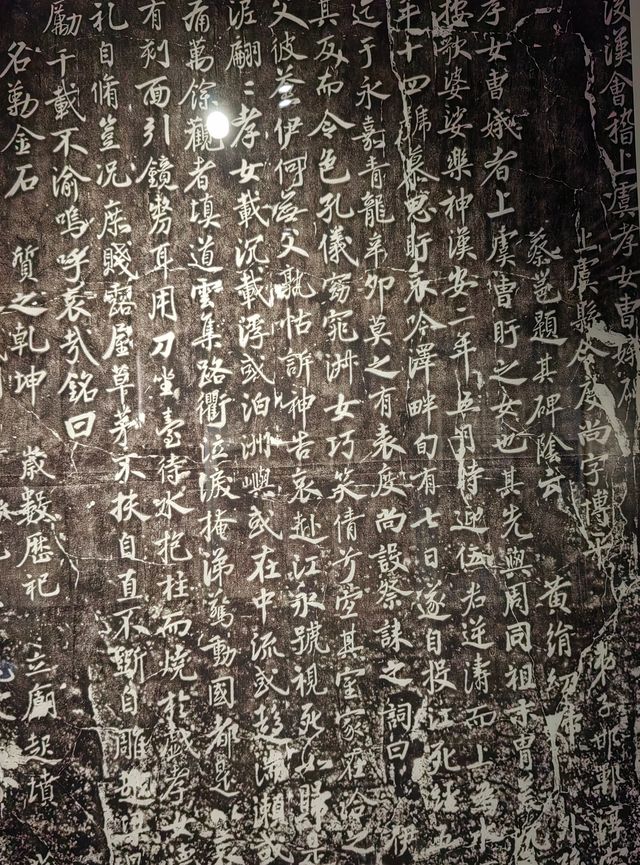 後漢會稽上虞孝女曹娥碑
上虞縣令度尚字博平 弟子邯鄲淳
蔡邕題其碑陰云 黃絹幼婦外
孝女曹娥者上虞曹盱之女也其先與周同祖末胄荒沉
按歌婆娑樂神漢安二年五月時迎伍君逆濤而上為水
年十四號慕思盱哀吟澤畔旬有七日遂自投江死經五
迄于永嘉青龍辛卯莫之有表度尚設祭誄之詞曰 伊
其反而令色孔儀窈窕淑女巧笑倩兮宜其室家在洽之
父彼蒼伊何無父孰怙訴神告哀赴江永號視死如歸是
泥翩二孝女載沉載浮或泊洲嶼或在中流或趍湍瀨或
痛萬餘觀者填道雲集路衢泣淚掩涕驚動國都是以哀
有刻面引鏡剺耳用刀坐臺待水抱柱而燒於戲孝女
礼自脩豈况庶賤露屋草茅不扶自直不斲自雕越梁
勵千載不渝嗚呼哀哉銘曰
名勒金石 質之乾坤 歲數歷祀 立廟起墳